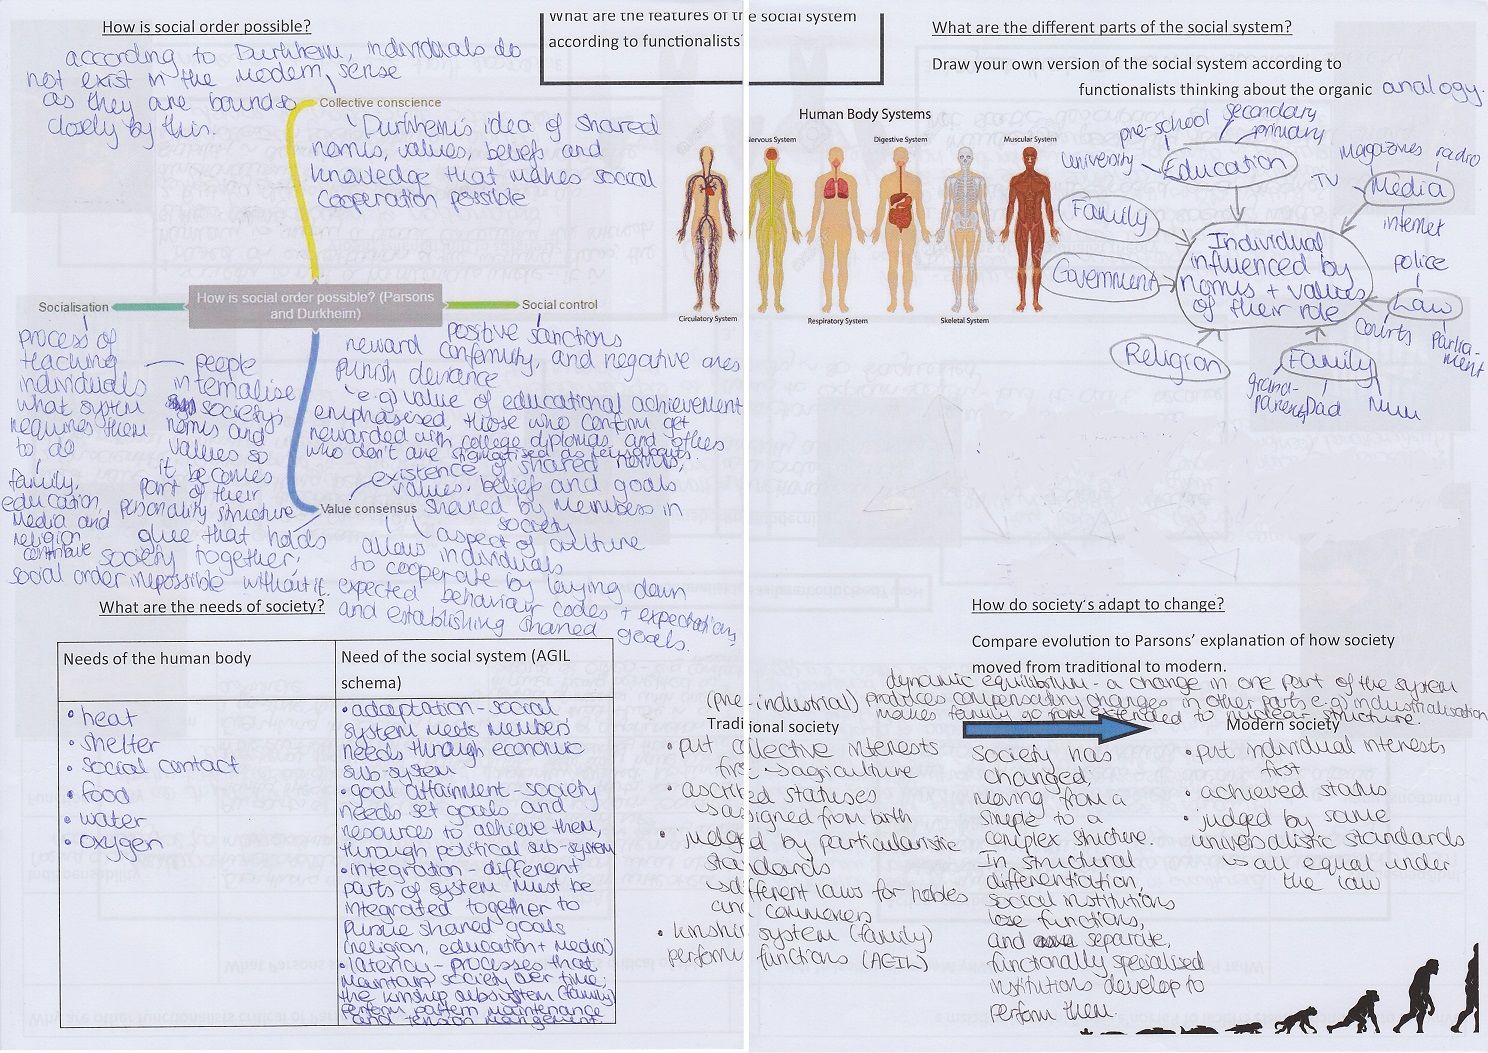 How is social order possible?
according to Durkheim, individuals do
not exist in the modern sense
as they are bounds
closely by this.
Collective conscience
Durkheim's idea of shared
norms, values, beliefs and
knowledge that makes social
cooperation possible
How is social order possible? (Parsons
and Durkheim)
Socialisation
process of
teaching
individuals
what system
requires them
to do
family,
education,
media and
religion
contribute
people
internalise
society's
norms and
values so
it becomes
part of their
personality structure
Social control
positive sanctions
reward conformity, and negative ones
punish deviance
e.g) value of educational achievement
emphasised, those who conform get
rewarded with college diplomas and others
who don't are stigmatised as
Value consensus
existence of shared norms,
values, beliefs and goals
shared by members in
society
aspect of culture
allows individuals
to cooperate by laying down
expected behaviour codes + expectations
and establishing shared goals.
glue that holds
society together,
social order impossible without it.
What are the needs of society?
Needs of the human body
• heat
• shelter
• social contact
• food
• water
• oxygen
Need of the social system (AGIL
schema)
• adaptation - social
system meets members'
needs through economic
sub-system
• goal attainment - society
needs set goals and
resources to achieve them,
through political sub-system
• integration - different
parts of system must be
integrated together to
pursue shared goals
(religion, education + media)
• latency - processes that
maintain society over time;
the kinship subsystem (family)
perform pattern maintenance
and tension management
What are the features of the social system
according to functionalists?
Human Body Systems
Circulatory System
Nervous System
Respiratory System
Digestive System
Skeletal System
Muscular System
What are the different parts of the social system?
Draw your own version of the social system according to
functionalists thinking about the organic analogy.
pre-school
secondary
primary
university
Education
magazines
radio
TV
Media
internet
Family
Government
Individual
influenced by
norms + values
of their role
police
Law
courts
parlia-
ment
Religion
Family
grand-
parents
Dad
Mum
How do society's adapt to change?
Compare evolution to Parsons' explanation of how society
moved from traditional to modern.
dynamic equilibrium - a change in one part of the system
produces compensating changes in other parts e.g) industrialisation
makes family go from extended to nuclear structure.
(pre-industrial)
Traditional society
• put collective interests
first
agriculture
• ascribed statuses
assigned from birth
• judged by particularistic
standards
different laws for nobles
and commoners
• kinship system (family)
perform functions (AGIL)
Society has
changed;
moving from a
simple to a
complex structure.
In structural
differentiation,
social institutions
lose functions,
and separate,
functionally specialised
institutions develop to
perform them.
Modern society
• put individual interests
first
• achieved status
• judged by same
universalistic standards
all equal under
the law